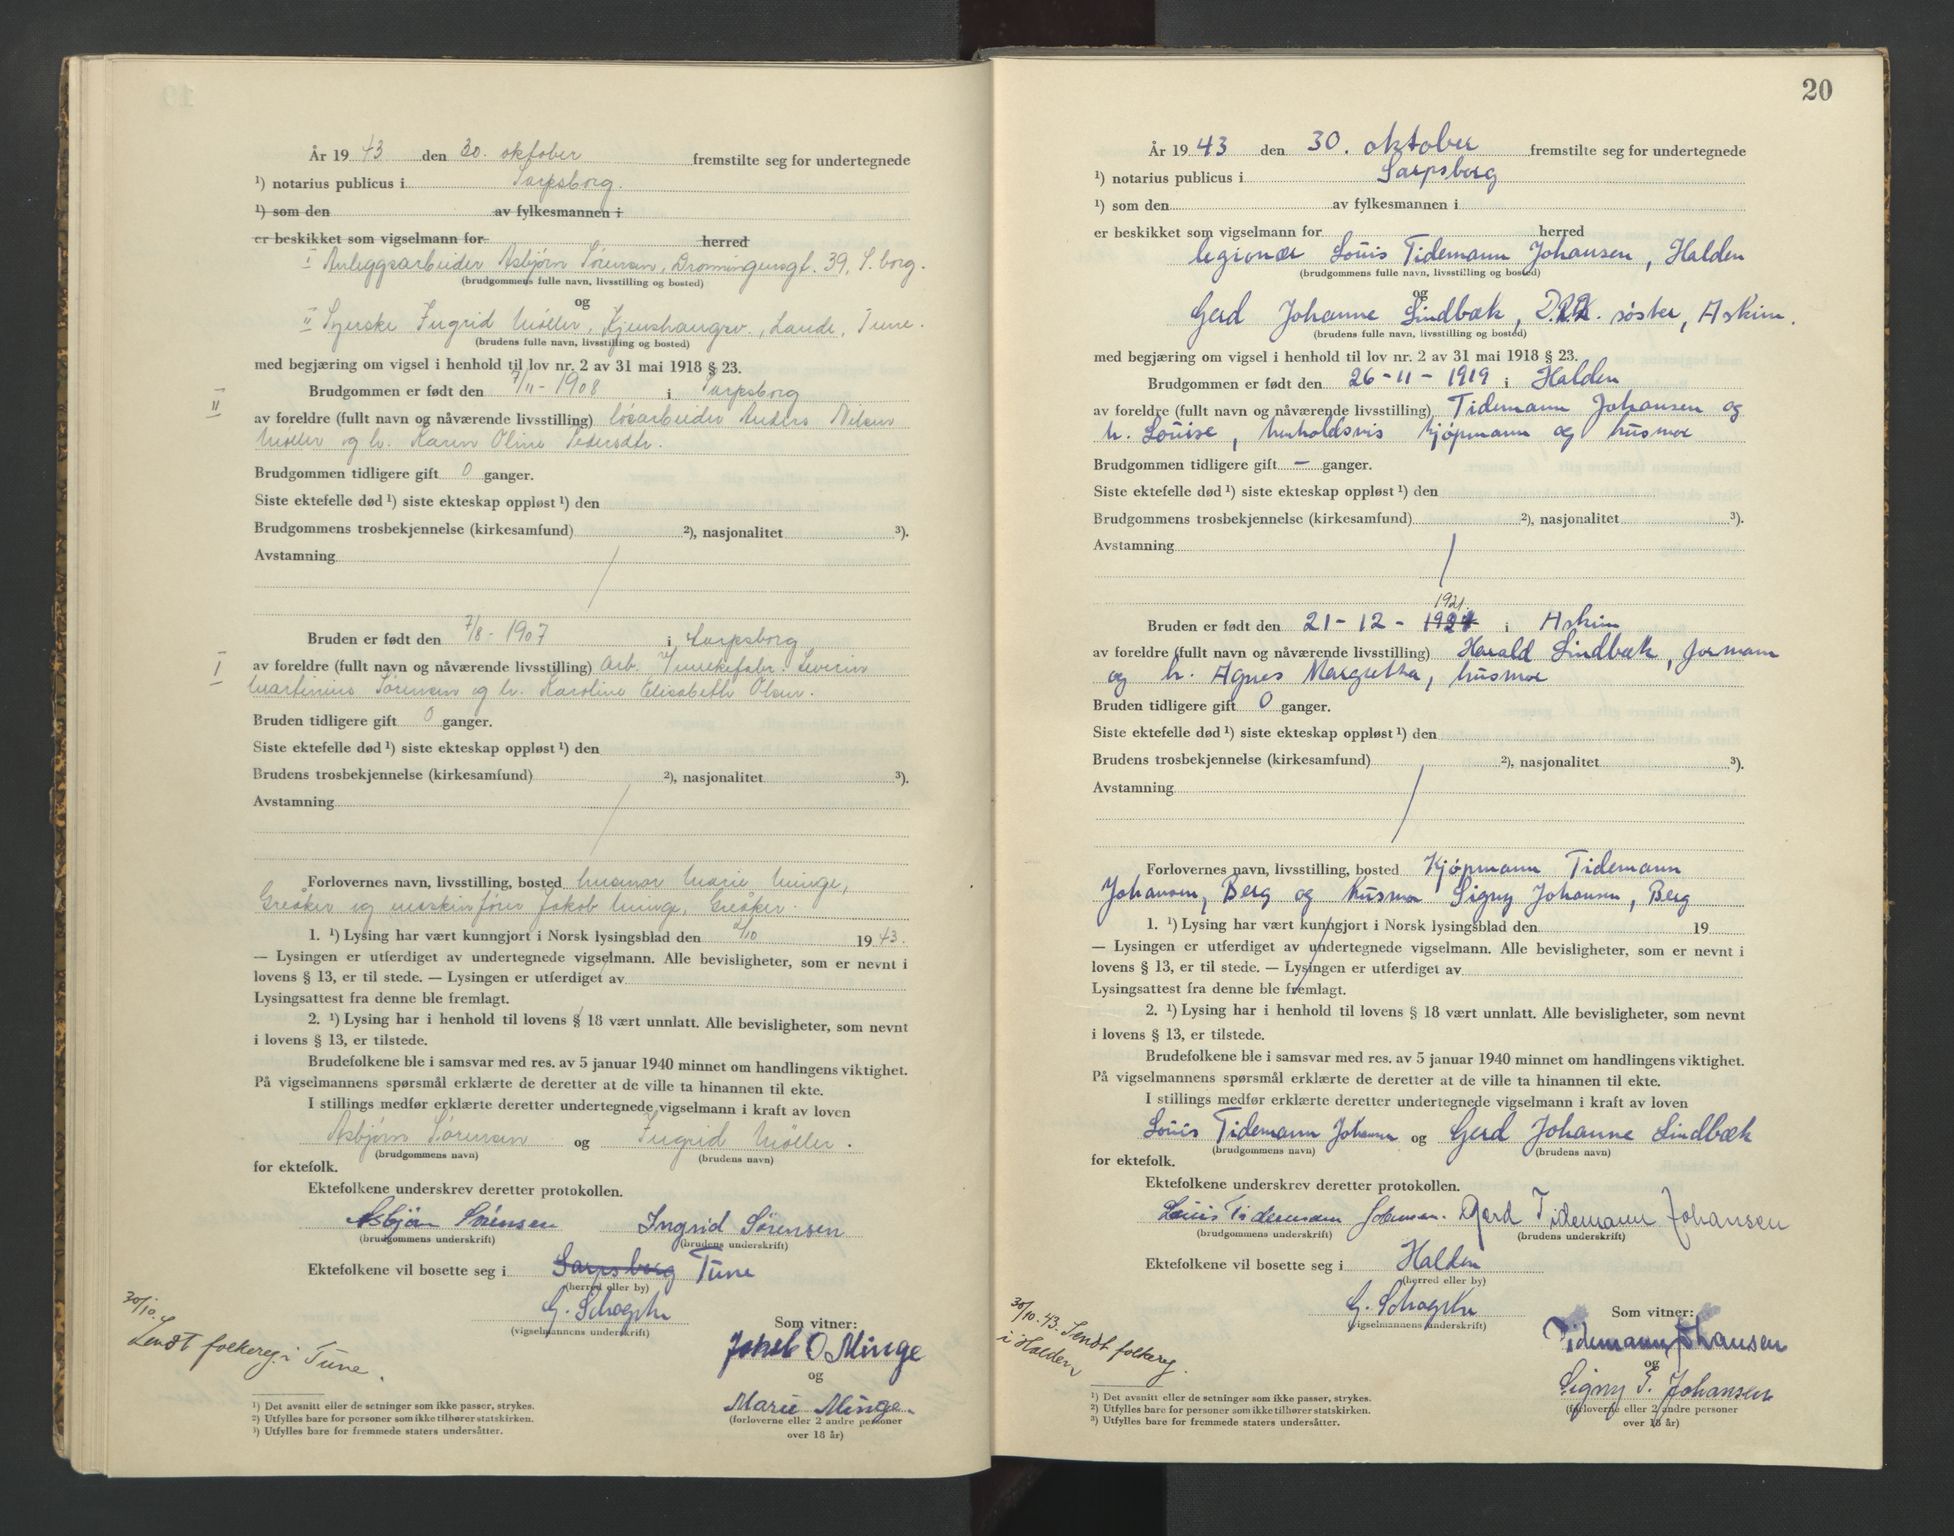 År 19 43 den 30. oktober fremstilte seg for undertegnede
¹) notarius publicus i Sarpsborg.
¹) som den av fylkesmannen i
er beskikket som vigselmann for herred
I Anleggsarbeider Asbjørn Sørensen, Dronningensgt. 39, S.borg.
(brudgommens fulle navn, livsstilling og bosted)
og
II Syerske Ingrid Møller, Lande, Tune.
(brudens fulle navn, livsstilling og bosted)
med begjæring om vigsel i henhold til lov nr. 2 av 31 mai 1918 § 23.
I
Brudgommen er født den 7/11 - 1908 i Sarpsborg
II
av foreldre (fullt navn og nåværende livsstilling) løsarbeider Anders Nilsen
Møller og h. Karen Oline Pedersdtr.
Brudgommen tidligere gift 0 ganger.
Siste ektefelle død ¹) siste ekteskap oppløst ¹) den
Brudgommens trosbekjennelse (kirkesamfund) ²), nasjonalitet ³).
Avstamning
Bruden er født den 7/8 - 1907 i Sarpsborg
I
av foreldre (fullt navn og nåværende livsstilling) arb. Severin
Martinius Sørensen og h. Karoline Elisabeth Olsen.
Bruden tidligere gift 0 ganger.
Siste ektefelle død ¹) siste ekteskap oppløst ¹) den
Brudens trosbekjennelse (kirkesamfund) ²), nasjonalitet ³).
Avstamning
Forlovernes navn, livsstilling, bosted husmor Marie Minge,
Greåker og maskinfører Jakob Minge, Greåker.
1. ¹) Lysing har vært kunngjort i Norsk lysingsblad den /10 19 43.
— Lysingen er utferdiget av undertegnede vigselmann. Alle bevisligheter, som er nevnt i
lovens § 13, er til stede. — Lysingen er utferdiget av
Lysingsattest fra denne ble fremlagt.
2. ¹) Lysing har i henhold til lovens § 18 vært unnlatt. Alle bevisligheter, som nevnt
i lovens § 13, er tilstede.
Brudefolkene ble i samsvar med res. av 5 januar 1940 minnet om handlingens viktighet.
På vigselmannens spørsmål erklærte de deretter at de ville ta hinannen til ekte.
I stillings medfør erklærte deretter undertegnede vigselmann i kraft av loven
Asbjørn Sørensen og Ingrid Møller.
(brudgommens navn) (brudens navn)
for ektefolk.
Ektefolkene underskrev deretter protokollen.
Asbjørn Sørensen Ingrid Sørensen
(brudgommens underskrift) (brudens underskrift)
Ektefolkene vil bosette seg i Sarpsborg Tune
(herred eller by)
G. Schagstu
(vigselmannens underskrift)
Som vitner:
30/10. Sendt folkereg. i Tune.
Jakob O Minge
og
Marie Minge.
(forloverne eller 2 andre personer
over 18 år)
¹) Det avsnitt eller de setninger som ikke passer, strykes.
²) Utfylles bare for personer som ikke tilhører statskirken.
³) Utfylles bare for fremmede staters undersåtter.
20
År 19 43 den 30. oktober fremstilte seg for undertegnede
¹) notarius publicus i Sarpsborg
¹) som den av fylkesmannen i
er beskikket som vigselmann for herred
legionær Louis Tidemann Johansen, Halden
(brudgommens fulle navn, livsstilling og bosted)
og
Gerd Johanne Lindbæk, D.R.K. søster, Askim.
(brudens fulle navn, livsstilling og bosted)
med begjæring om vigsel i henhold til lov nr. 2 av 31 mai 1918 § 23.
Brudgommen er født den 26 - 11 - 1919 i Halden
av foreldre (fullt navn og nåværende livsstilling) Tidemann Johansen og
h. Louise, henholdsvis kjøpmann og husmor
Brudgommen tidligere gift – ganger.
Siste ektefelle død ¹) siste ekteskap oppløst ¹) den
Brudgommens trosbekjennelse (kirkesamfund) ²), nasjonalitet ³).
Avstamning
1921.
Bruden er født den 21 - 12 - 1921 i Askim
av foreldre (fullt navn og nåværende livsstilling) Harald Lindbæk, formann
og h. Agnes Margretha, husmor
Bruden tidligere gift 0 ganger.
Siste ektefelle død ¹) siste ekteskap oppløst ¹) den
Brudens trosbekjennelse (kirkesamfund) ²), nasjonalitet ³).
Avstamning
Forlovernes navn, livsstilling, bosted Kjøpmann Tidemann
Johansen, Berg og Husmor Signy Johansen, Berg
1. ¹) Lysing har vært kunngjort i Norsk lysingsblad den 19
— Lysingen er utferdiget av undertegnede vigselmann. Alle bevisligheter, som er nevnt i
lovens § 13, er til stede. — Lysingen er utferdiget av
Lysingsattest fra denne ble fremlagt.
2. ¹) Lysing har i henhold til lovens § 18 vært unnlatt. Alle bevisligheter, som nevnt
i lovens § 13, er tilstede.
Brudefolkene ble i samsvar med res. av 5 januar 1940 minnet om handlingens viktighet.
På vigselmannens spørsmål erklærte de deretter at de ville ta hinannen til ekte.
I stillings medfør erklærte deretter undertegnede vigselmann i kraft av loven
Louis Tidemann Johansen og Gerd Johanne Lindbæk
(brudgommens navn) (brudens navn)
for ektefolk.
Ektefolkene underskrev deretter protokollen.
Louis Tidemann Johansen. Gerd Tidemann Johansen
(brudgommens underskrift) (brudens underskrift)
Ektefolkene vil bosette seg i Halden
(herred eller by)
G. Schagstu
(vigselmannens underskrift)
Som vitner:
30/10. 43. Sendt folkereg.
i Halden
Tidemann Johansen
og
Signy T. Johansen
(forloverne eller 2 andre personer
over 18 år)
¹) Det avsnitt eller de setninger som ikke passer, strykes.
²) Utfylles bare for personer som ikke tilhører statskirken.
³) Utfylles bare for fremmede staters undersåtter.